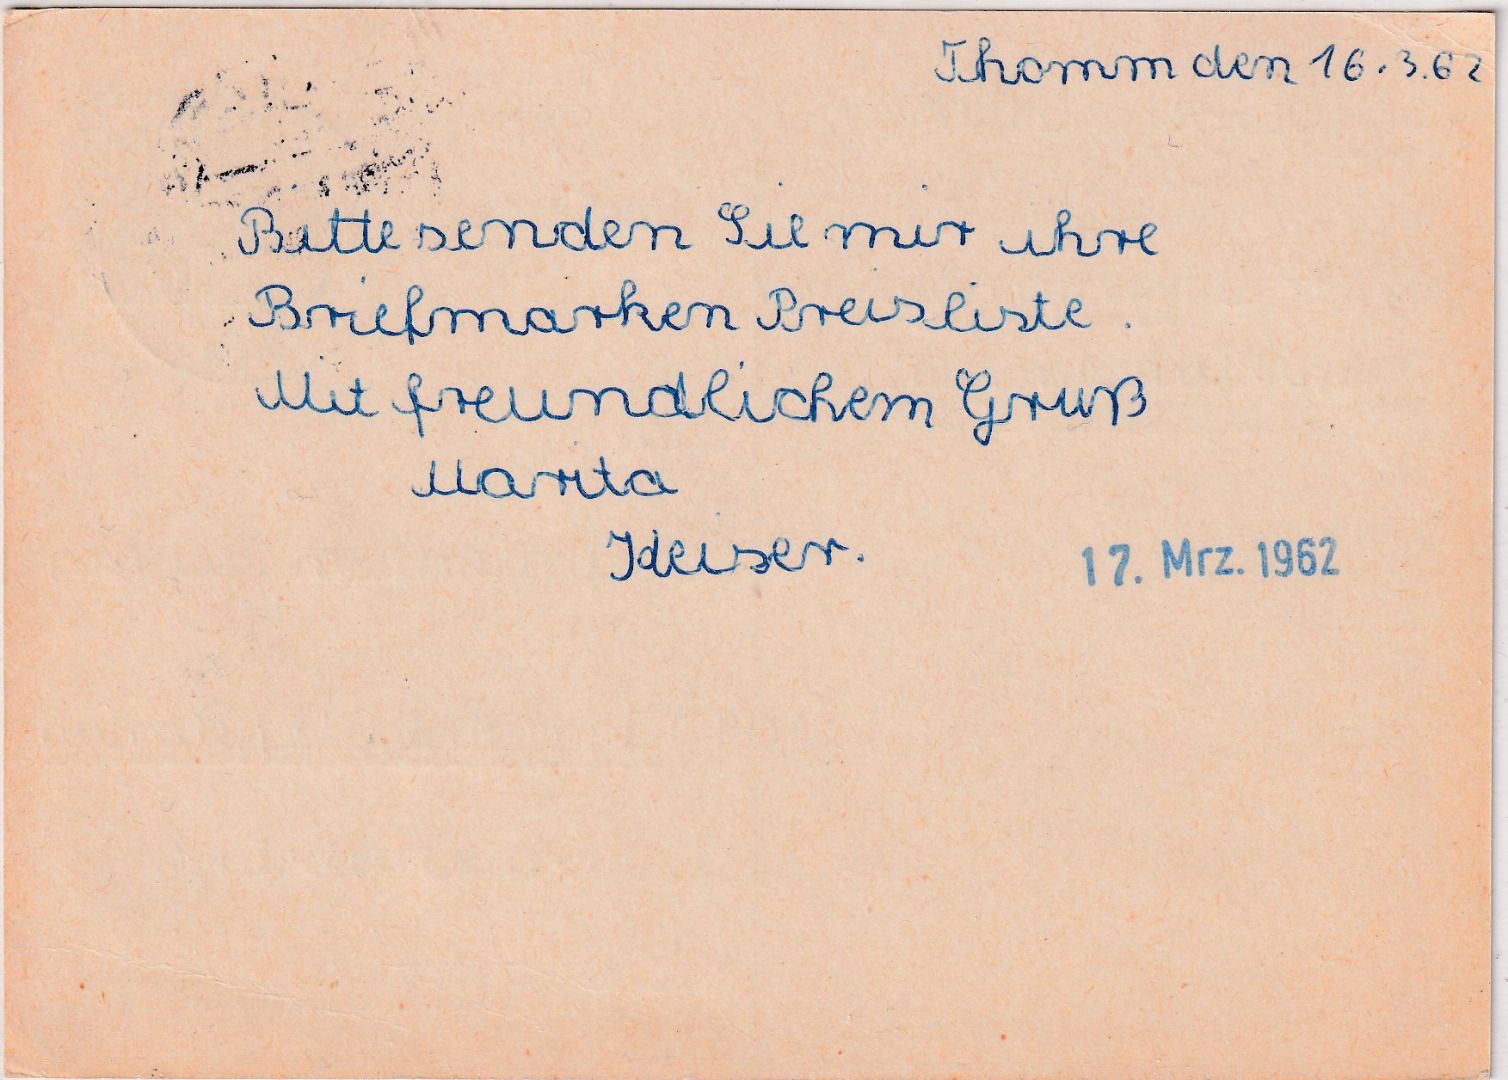 Thomm den 16.3.62
Bitte senden Sie mir ihre
Briefmarken Preisliste.
Mit freundlichem Gruß
Marita
17. Mrz. 1962